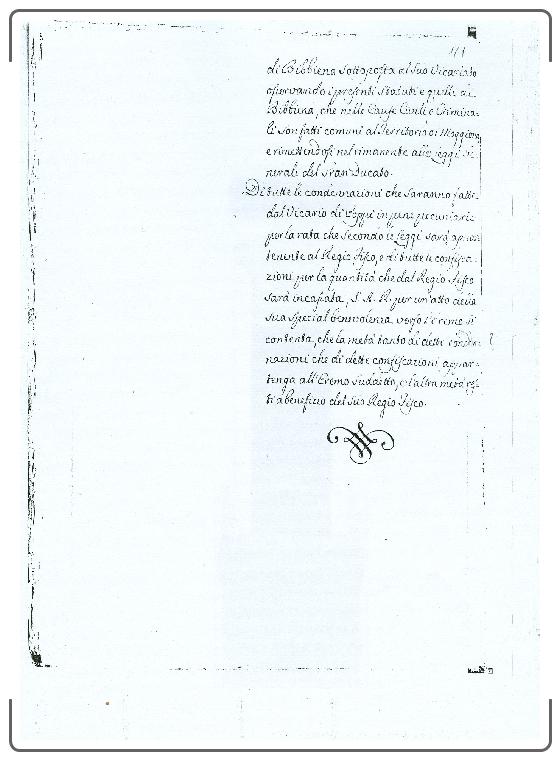 41
di Bibbiena sottoposta al suo Vicariato
osservando i presenti statuti e quelli di
Bibbiena, che nelle Cause Civili e Crimina-
li son fatti comuni al Territorio di Moggiona
e rimettendosi nel rimanente alle Leggi Ge
nerali del Gran Ducato.
Di tutte le condennazioni che saranno fatte
dal Vicario di Poppi in pene pecuniarie
per la rata che secondo le Leggi sarà appar
tenente al Regio Fisco, e di tutte le confisca-
zioni per la quantità che dal Regio Fisco
sarà incassata, S. A. R. per un'atto della
sua special benevolenza verso l'Eremo si
contenta, che la metà tanto di dette conden
nazioni che di dette confiscazioni appar-
tenga all'Eremo suddetto, e l'altra metà res
ti a benefizio del suo Regio Fisco.